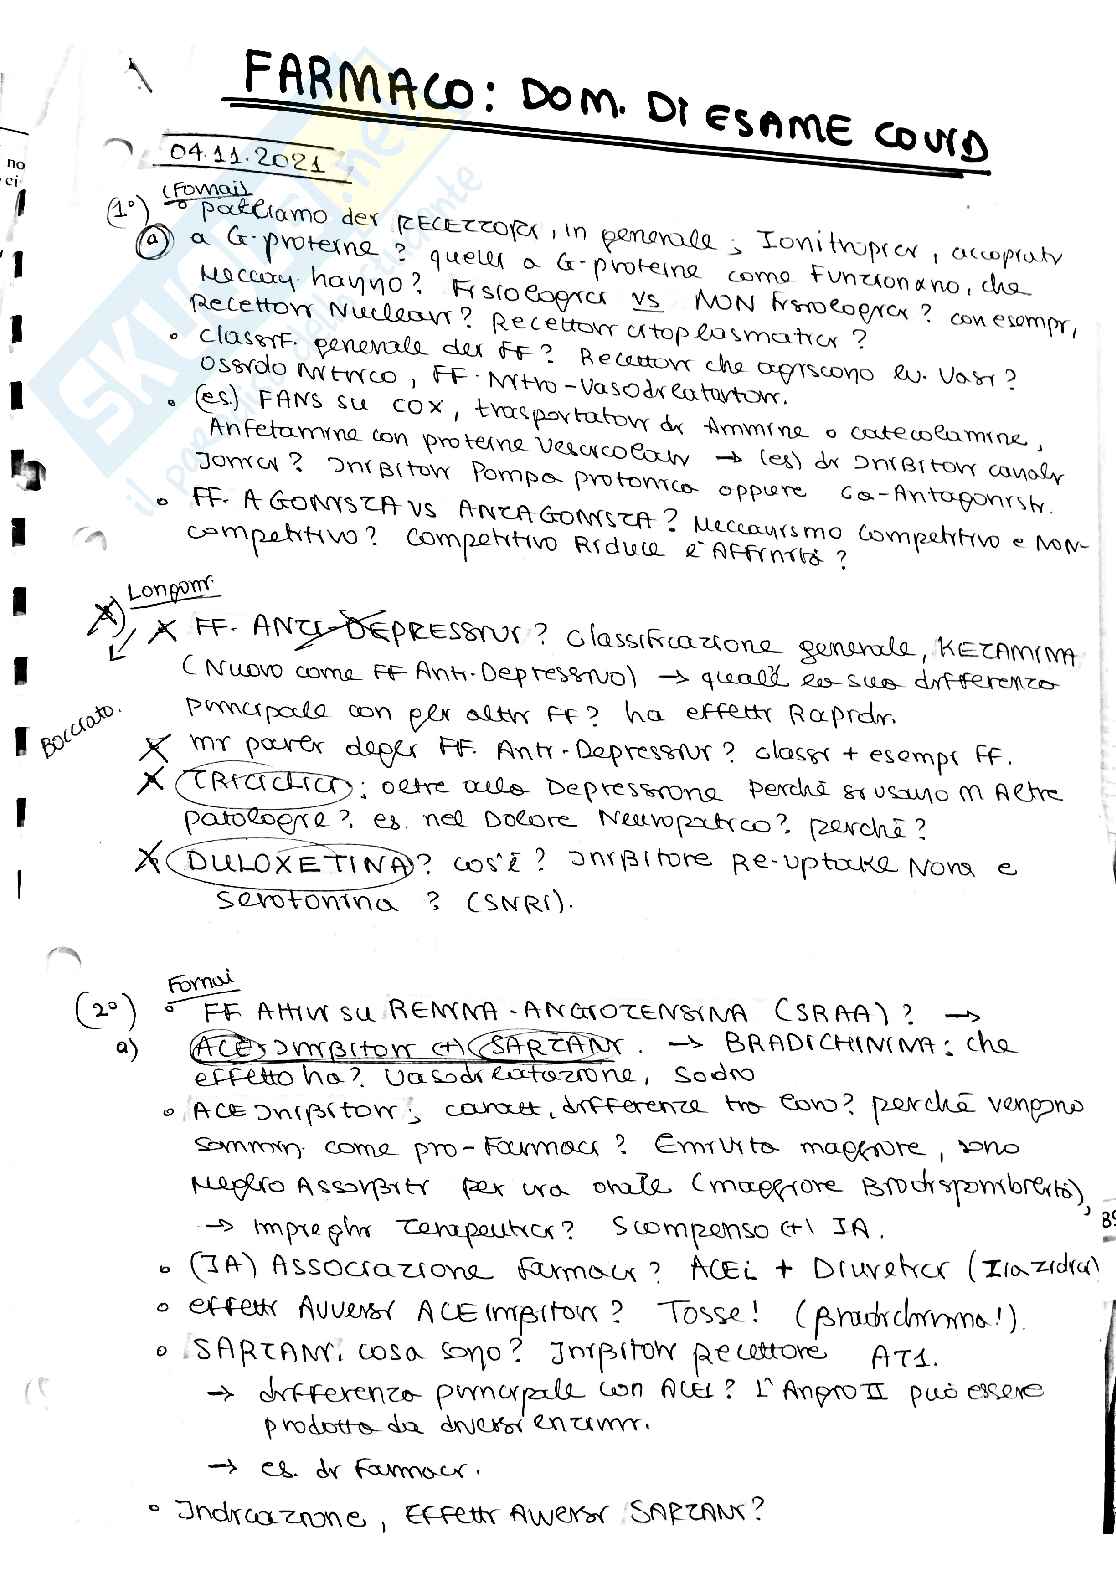 FARMACO: DOM. DI ESAME COVID
04.11.2021
(Fornai)
(1°) • parliamo dei RECETTORI, in generale; Ionitropici, accoppiati
(a) a G-proteine? quelli a G-proteine come funzionano, che
Meccan. hanno? Fisiologici vs NON fisiologici? con esempi,
Recettori Nucleari? Recettori citoplasmatici?
• classif. generale dei FF? Recettori che agiscono liv. Vasi?
Ossido Nitrico, FF. Nitro-Vasodilatatori.
• (es.) FANS su COX, trasportatori di Ammine o catecolamine,
Anfetamine con proteine vescicolari → (es) di Inibitori canali
Ionici? Inibitori Pompa protonica oppure Ca-Antagonisti.
• FF. AGONISTA VS ANTAGONISTA? Meccanismo competitivo e NON-
competitivo? Competitivo Riduce l'Affinità?
Longoni
FF. ANTI-DEPRESSIVI? Classificazione generale, KETAMINA
(Nuovo come FF Anti-Depressivo) → qual è la sua differenza
principale con gli altri FF? ha effetti Rapidi.
Bocciato.
mi parli degli FF. Anti-Depressivi? classi + esempi FF.
TRICICLICI: oltre alla Depressione perchè si usano in Altre
patologie? es. nel Dolore Neuropatico? perchè?
DULOXETINA? cos'è? Inibitore Re-uptake Nora e
Serotonina? (SNRI).
Fornai
(2°) • FF Attivi su RENINA-ANGIOTENSINA (SRAA)? →
a) ACE Inibitori (+) SARTANI. → BRADICHININA: che
effetto ha? Vasodilatazione, Sodio
• ACE Inibitori; caratt, differenze tra loro? perchè vengono
sommin. come pro-Farmaci? Emivita maggiore, sono
Meglio Assorbiti per via orale (maggiore Biodisponibilità),
→ impieghi Terapeutici? Scompenso (+) IA.
• (IA) Associazione farmaci? ACEi + Diuretici (Tiazidici)
• effetti Avversi ACE inibitori? Tosse! (Bradichinina!).
• SARTANI. cosa sono? Inibitori recettore AT1.
→ differenza principale con ACEi? L'Angio II può essere
prodotta da diversi enzimi.
→ es. di Farmaci.
• Indicazione, Effetti Avversi SARTANI?